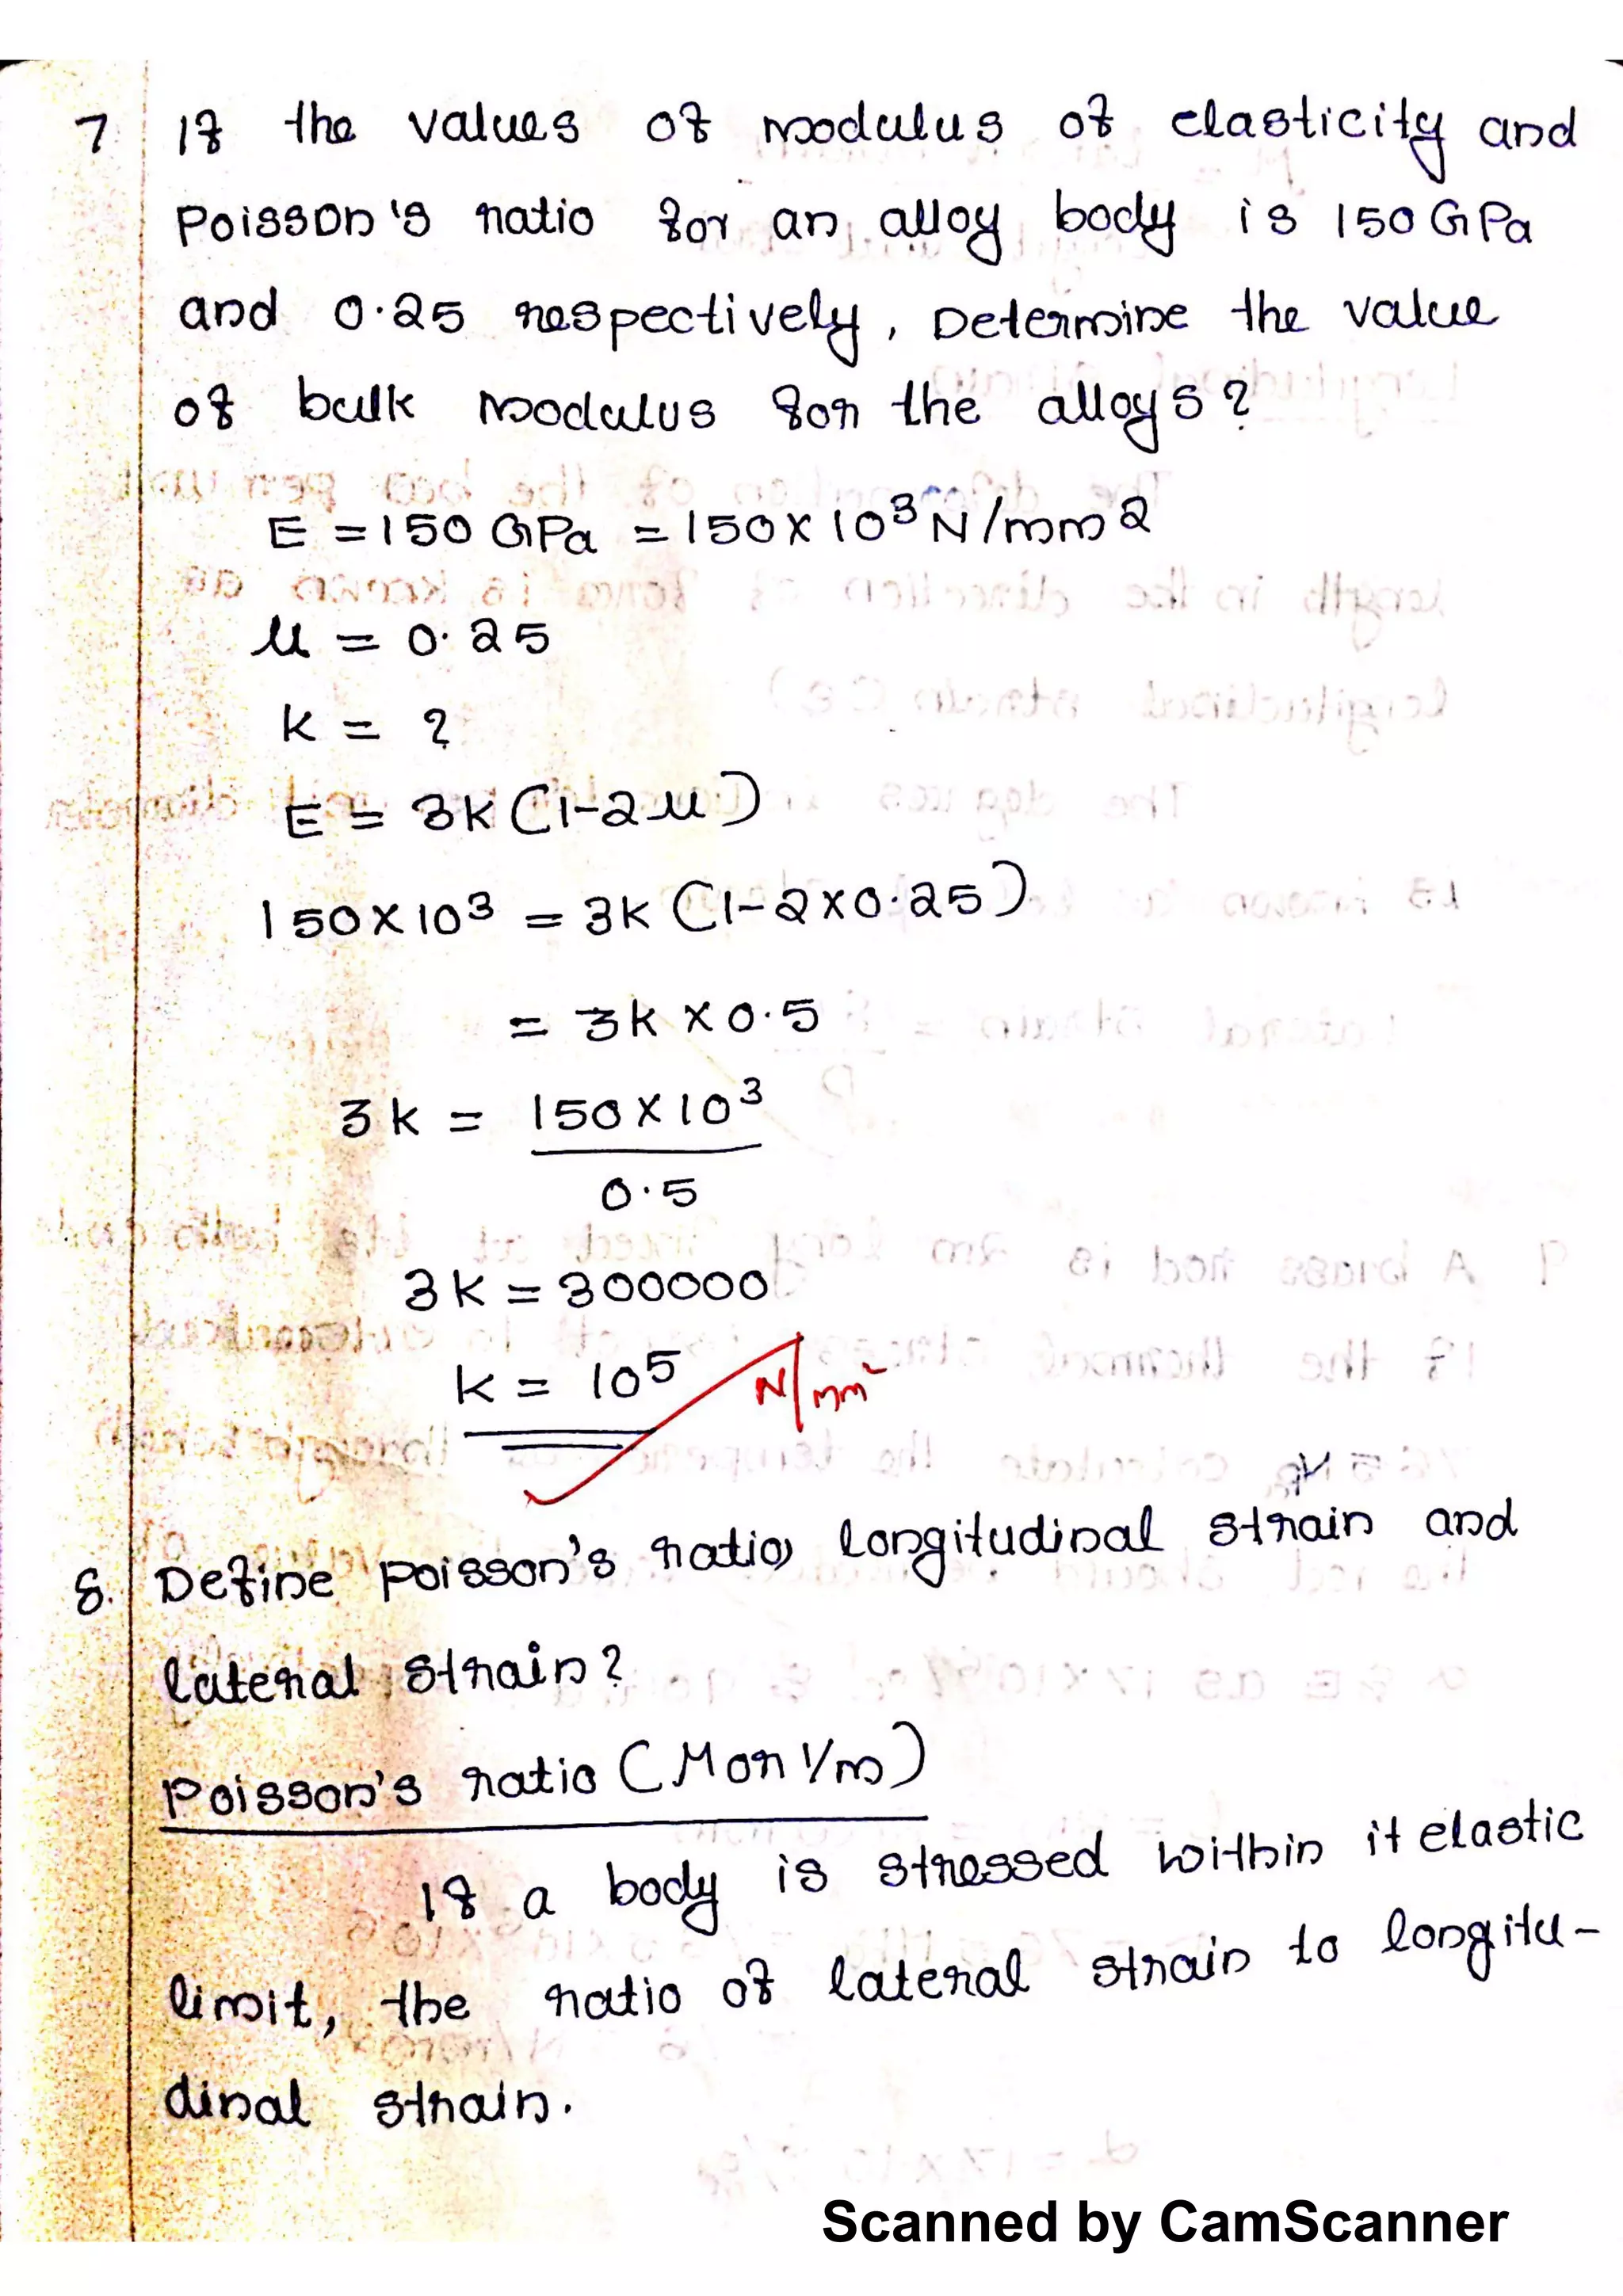 7 If the values of modulus of elasticity and
Poisson's ratio for an alloy body is 150 GPa
and 0.25 respectively, Determine the value
of bulk modulus for the alloys?
E = 150 GPa = 150 x 10³ N/mm2
μ = 0.25
k = ?
E = 3k (1-2μ)
150 x 10³ = 3k (1-2x0.25)
= 3k x 0.5
3k = 150 x 10³
0.5
3k = 300000
k = 10⁵ N/mm²
8. Define poisson's ratio, longitudinal strain and
lateral strain?
Poisson's ratio (μ or 1/m)
If a body is stressed within it elastic
limit, the ratio of lateral strain to longitu-
dinal strain.
Scanned by CamScanner